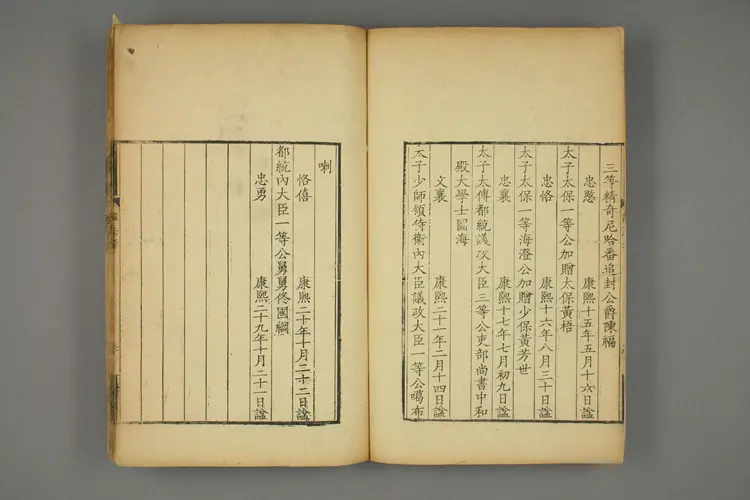 三等精奇尼哈番追封公爵陳福
忠愍 康熙十五年五月十六日諡
太子太保一等公加贈太保黃梧
忠恪 康熙十六年八月三十日諡
太子太保一等海澄公加贈少保黃芳世
忠襄 康熙十七年七月初九日諡
太子太傅都統議政大臣三等公吏部尚書中和
殿大學士圖海
文襄 康熙二十一年二月十四日諡
太子少師領侍衛內大臣議政大臣一等公噶布
喇
恪僖 康熙二十年十月二十二日諡
都統內大臣一等公舅舅佟國綱
忠勇 康熙二十九年十月二十一日諡